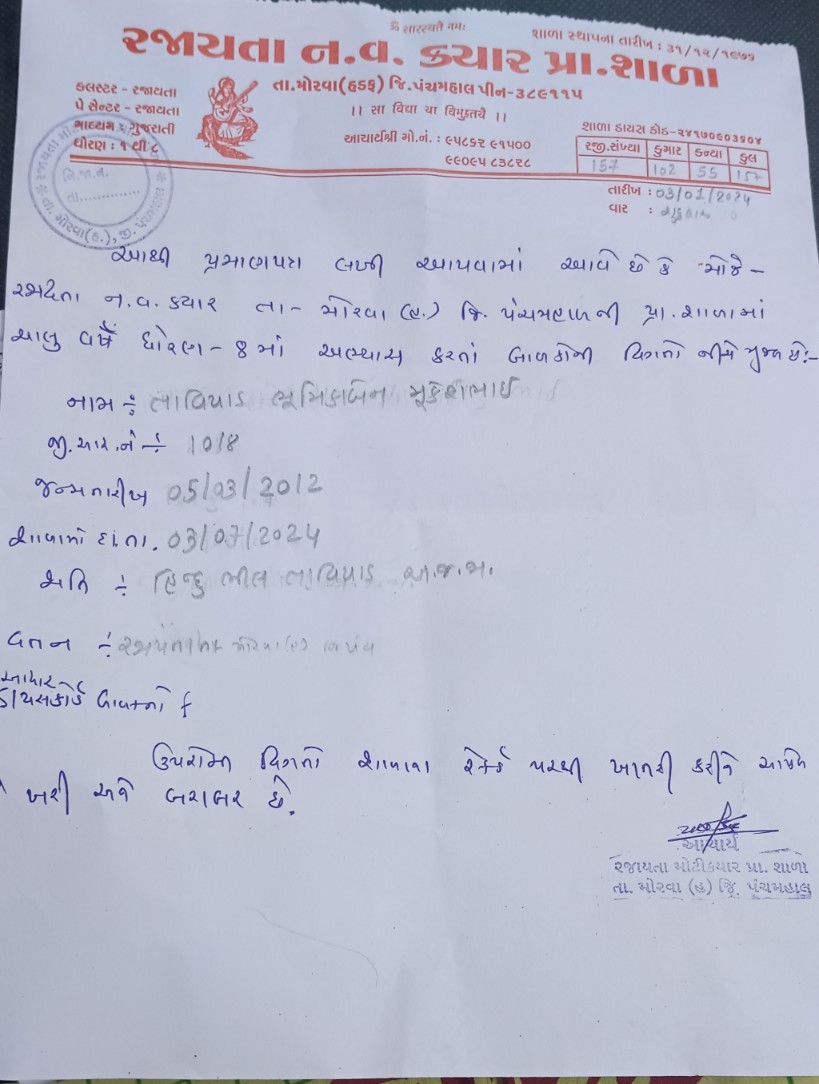 ૐ સરસ્વત્યૈ નમઃ
શાળા સ્થાપના તારીખ : ૩૧/૧૨/૧૯૭૫
રજાયતા ન.વ. ક્યાર પ્રા.શાળા
તા.મોરવા(હડફ) જિ.પંચમહાલ પીન-૩૮૯૧૧૫
।। સા વિદ્યા યા વિમુક્તયે ।।
કલસ્ટર - રજાયતા
પે સેન્ટર - રજાયતા
માધ્યમ : ગુજરાતી
ધોરણ : ૧ થી ૮
આચાર્યશ્રી મો.નં. : ૯૫૮૬૨ ૯૧૫૦૦
૯૯૦૯૫ ૮૩૮૨૮
શાળા ડાયસ કોડ-૨૪૧૭૦૯૦૩૧૦૪
રજી.સંખ્યા કુમાર કન્યા કુલ
157 102 55 157
તારીખ : 03/01/2024
વાર :
આથી પ્રમાણપત્ર લખી આપવામાં આવે છે કે મોજે-
ન.વ. ક્યાર તા- મોરવા (હ.) જિ. પંચમહાલની પ્રા. શાળામાં
ચાલુ વર્ષે ધોરણ - 8 માં અભ્યાસ કરતાં બાળકોની વિગતો નીચે મુજબ છે:-
નામ ÷ તાવિયાડ ભૂમિકાબેન મૂકેશભાઇ
જી.આર.નં ÷ 1018
જન્મ તારીખ 05/03/2012
શાળામાં દા.તા. 03/07/2024
જાતિ ÷ હિન્દુ ભીલ તાવિયાડ અ.જ.જા.
વતન ÷
આધાર
ડાયસકોર્ડ
ઉપરોક્ત વિગતો શાળાના રેકર્ડ પરથી ખાતરી કરીને આપેલ
ખરી અને બરાબર છે.
આચાર્ય
રજાયતા મોટીક્યાર પ્રા. શાળા
તા. મોરવા (હ) જિ. પંચમહાલ